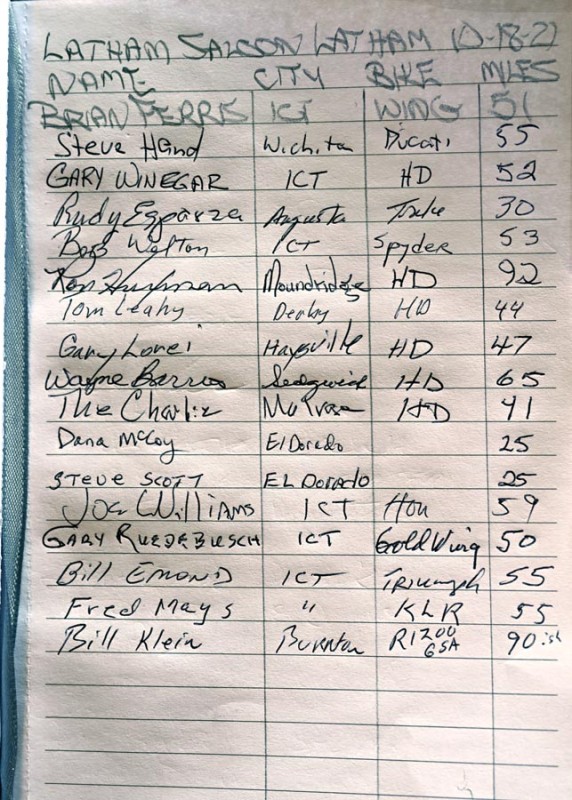 LATHAM SALOON LATHAM 10-18-21
NAME CITY BIKE MILES
BRIAN FERRIS ICT WING 51
Steve Hand Wichita Ducati 55
GARY WINEGAR ICT HD 52
Rudy Esparza Augusta 30
Bob Walton ICT Spyder 53
Ken Moundridge HD 92
Tom Leahy Derby HD 44
Gary Lorei Haysville HD 47
Wayne Sedgwick HD 65
The Charlie Mulvane HD 41
Dana McCoy El Dorado 25
STEVE SCOTT EL DORADO 25
Joe Williams ICT Hon 59
GARY RUEDEBUSCH ICT Gold Wing 50
Bill EMOND ICT TRIUMPH 55
Fred Mays " KLR 55
Bill Klein Burrton R1200 GSA 90ish